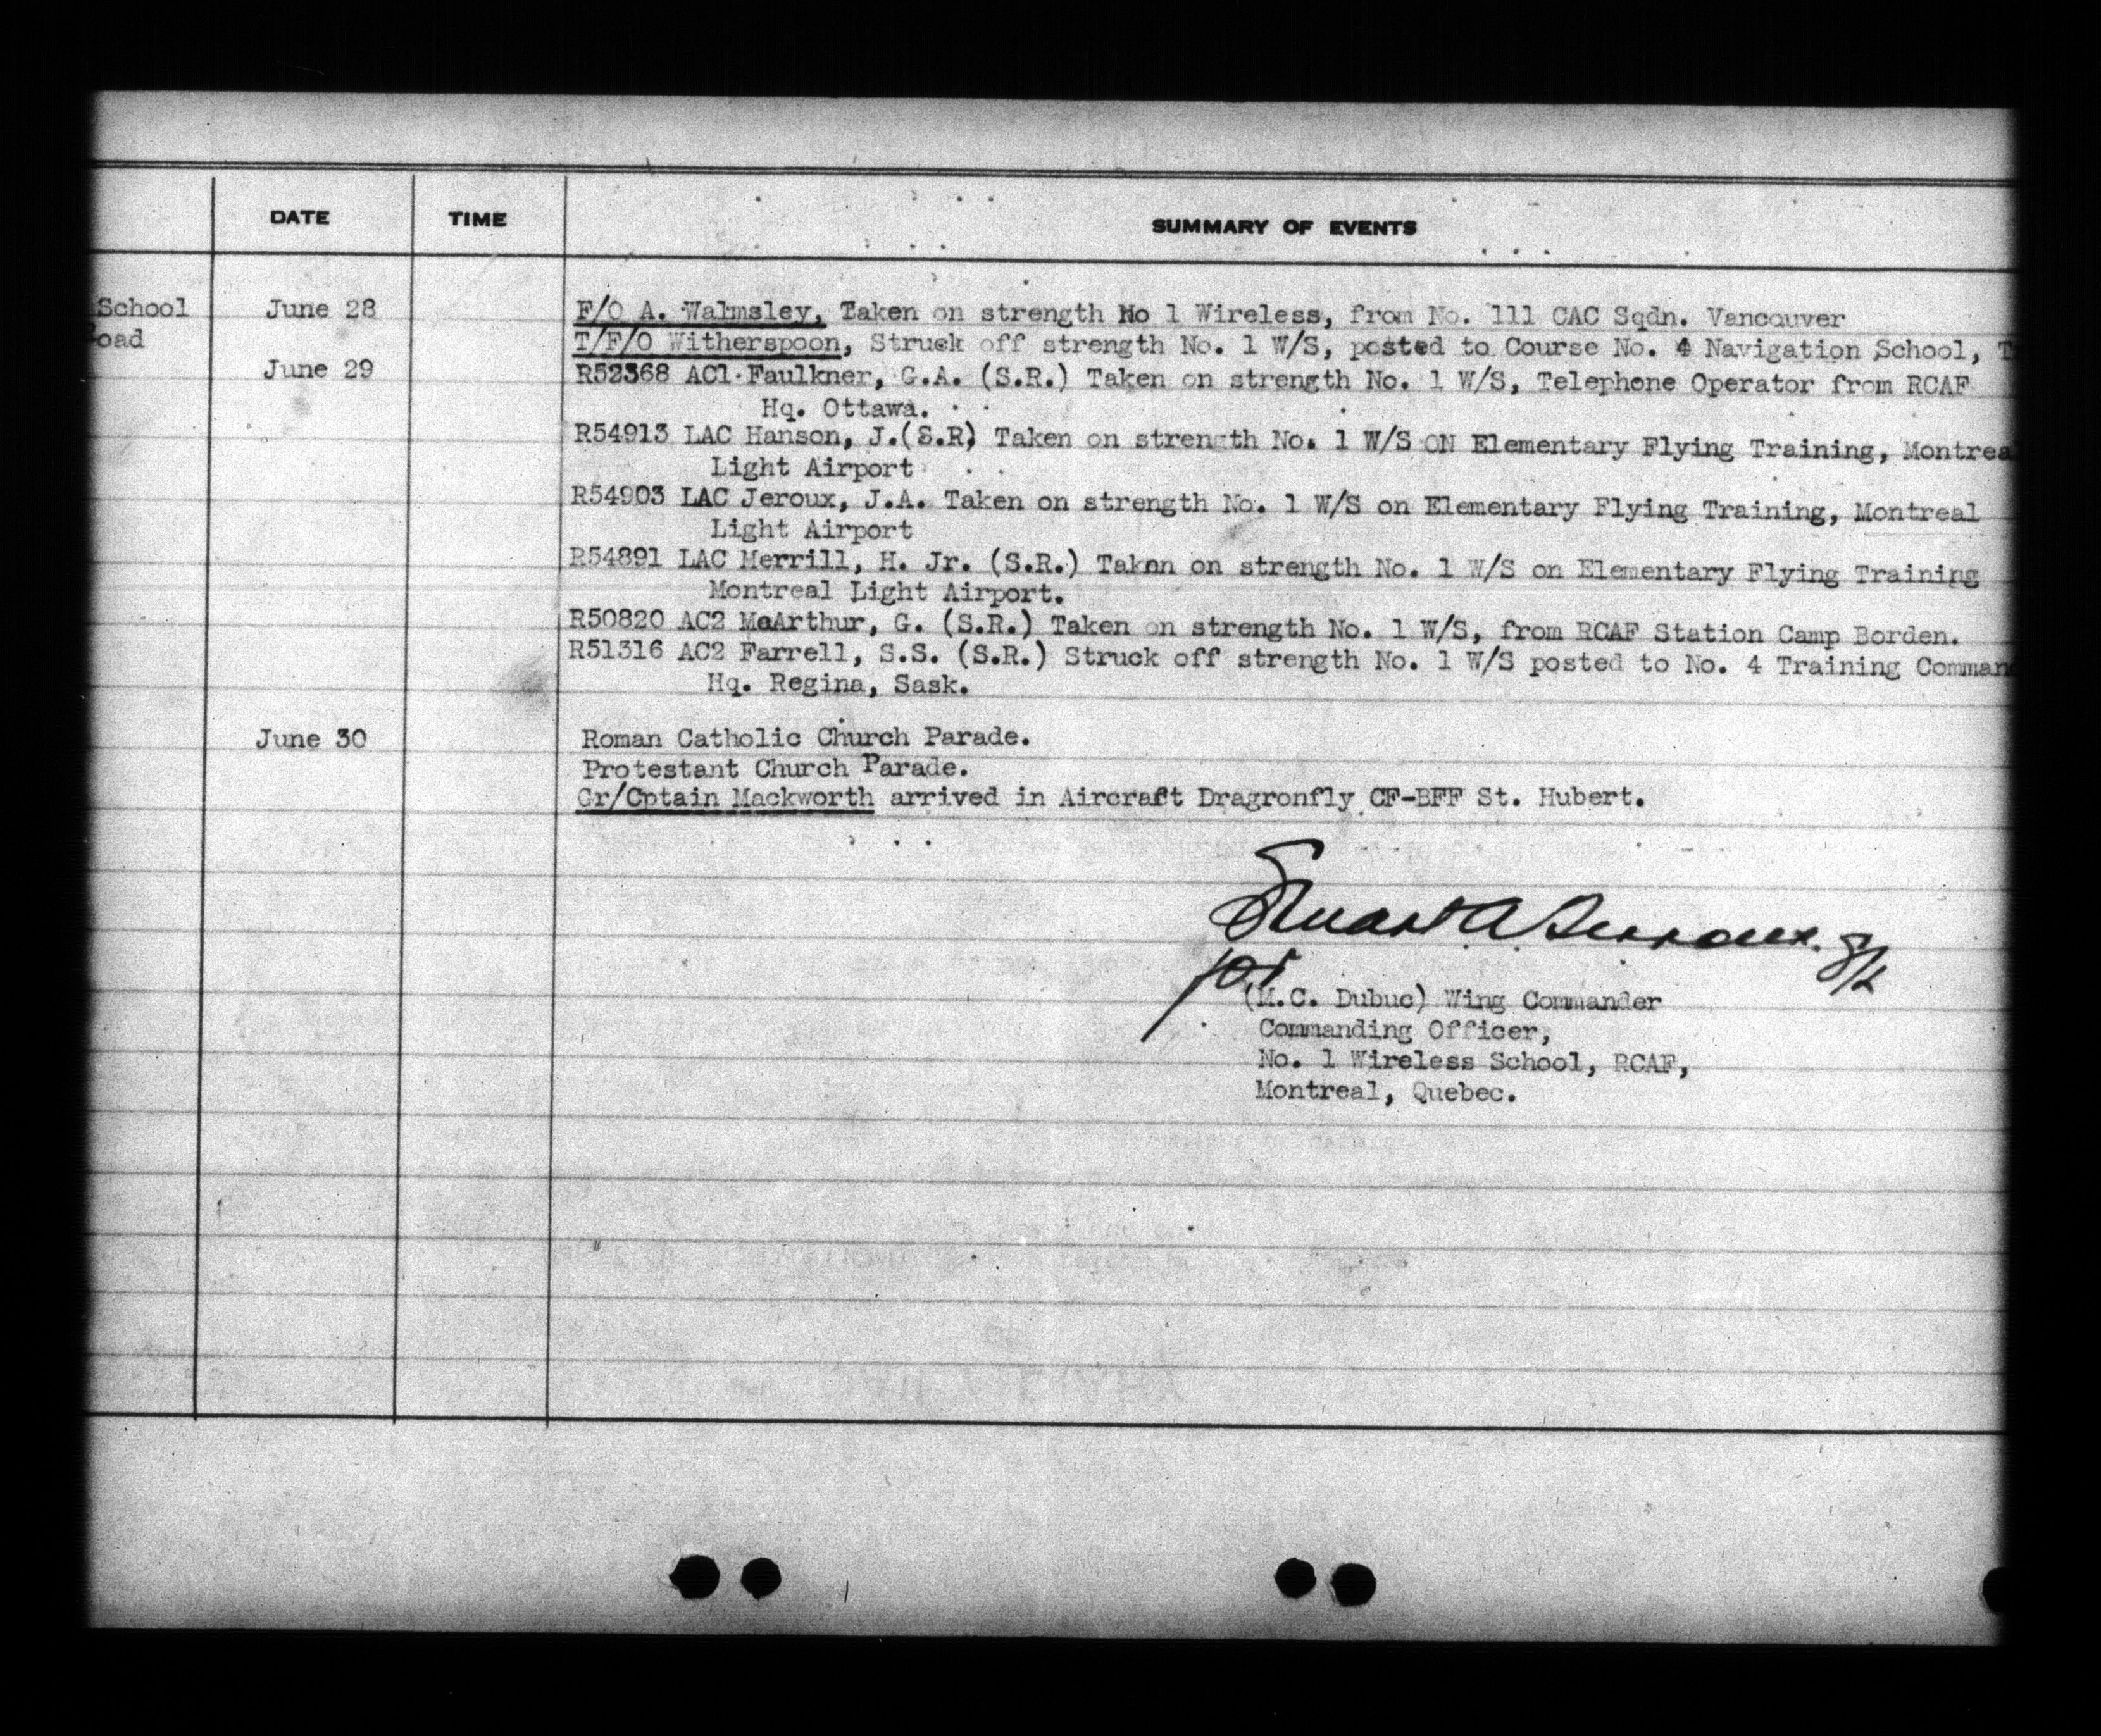 DATE TIME SUMMARY OF EVENTS
School June 28 F/O A. Walmsley, Taken on strength No 1 Wireless, from No. 111 CAC Sqdn. Vancouver
oad T/F/O Witherspoon, Struck off strength No. 1 W/S, posted to Course No. 4 Navigation School, T
June 29 R52368 AC1 Faulkner, G.A. (S.R.) Taken on strength No. 1 W/S, Telephone Operator from RCAF
Hq. Ottawa.
R54913 LAC Hanson, J.(S.R) Taken on strength No. 1 W/S ON Elementary Flying Training, Montrea
Light Airport
R54903 LAC Jeroux, J.A. Taken on strength No. 1 W/S on Elementary Flying Training, Montreal
Light Airport
R54891 LAC Merrill, H. Jr. (S.R.) Taken on strength No. 1 W/S on Elementary Flying Training
Montreal Light Airport.
R50820 AC2 McArthur, G. (S.R.) Taken on strength No. 1 W/S, from RCAF Station Camp Borden.
R51316 AC2 Farrell, S.S. (S.R.) Struck off strength No. 1 W/S posted to No. 4 Training Comman
Hq. Regina, Sask.
June 30 Roman Catholic Church Parade.
Protestant Church Parade.
Gr/Cptain Mackworth arrived in Aircraft Dragronfly CF-BFF St. Hubert.
Stuart A
for
(M.C. Dubuc) Wing Commander
Commanding Officer,
No. 1 Wireless School, RCAF,
Montreal, Quebec.